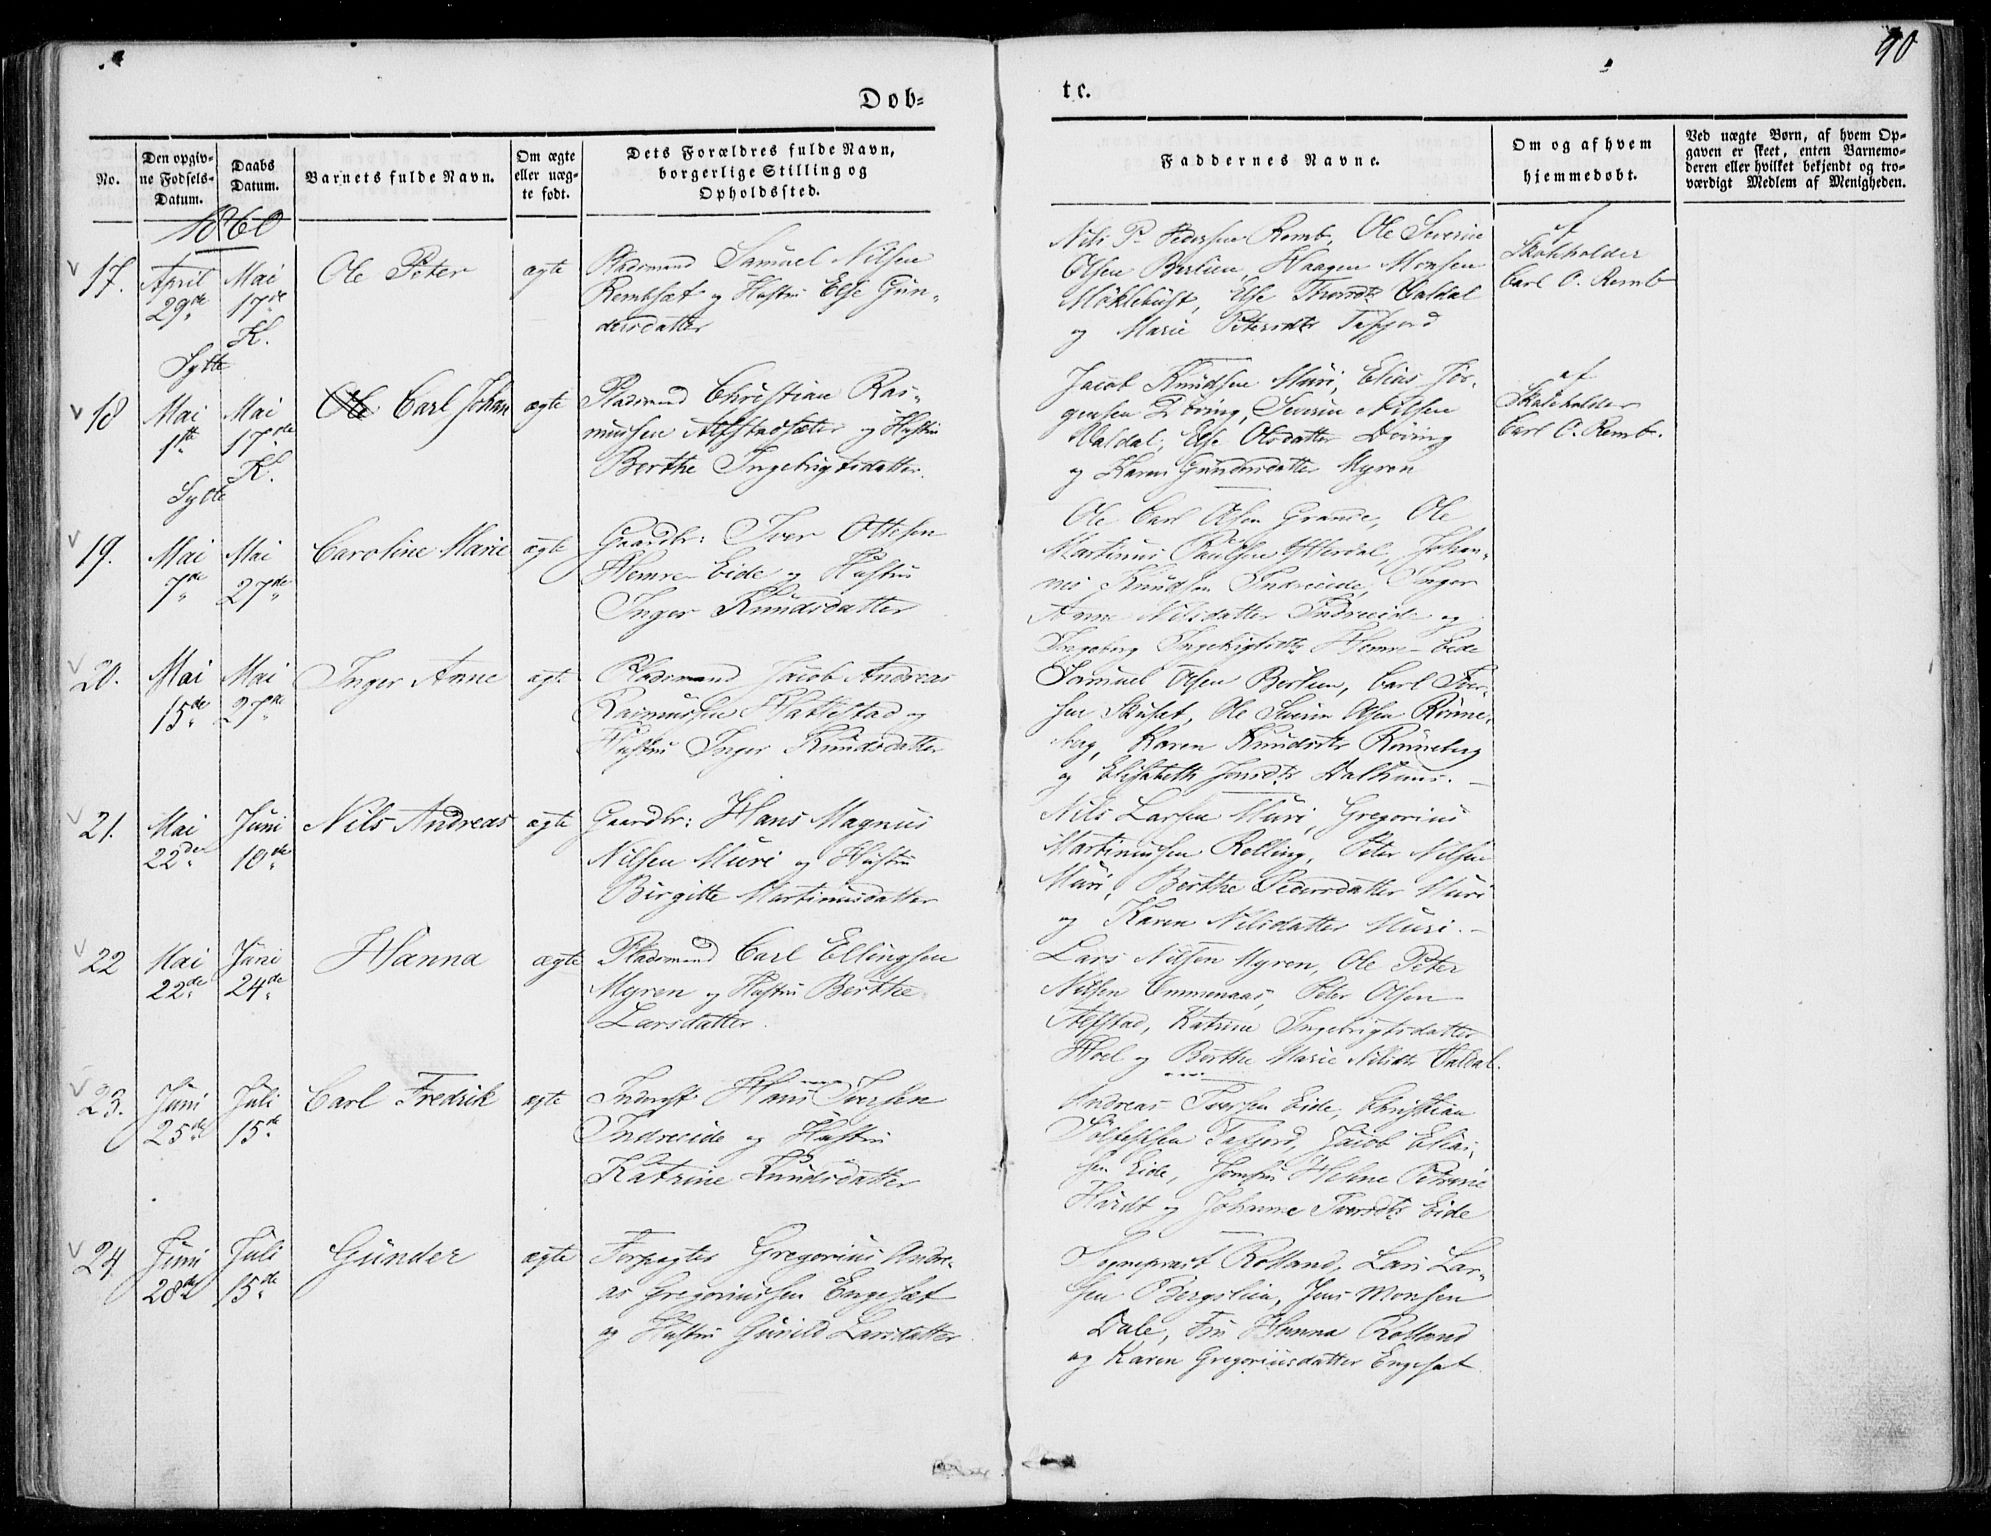 90
Døb=
te.
No.
Den opgiv-
ne Fødsels-
Datum.
Daabs
Datum.
Barnets fulde Navn.
Om ægte
eller uæg-
te født.
Dets Forældres fulde Navn,
borgerlige Stilling og
Opholdssted.
Faddernes Navne.
Om og af hvem
hjemmedøbt.
Ved uægte Børn, af hvem Op-
gaven er skeet, enten Barnemo-
deren eller hvilket bekjendt og tro-
værdigt Medlem af Menigheden.
1860
17.
April
29de
Mai
17de
K.
Ole Peter
ægte
Pladsmand Samuel Nilsen
Rembsæt og Hustru Else Gun-
dersdatter
Nils P. Pedersen Remb, Ole Severin
Olsen Berlien, Haagen Monsen
Möklebust, Else Thorsdtr Valdal
og Marie Petersdtr Tafjord
af
Skoleholder
Carl C. Remb
Sylte
18
Mai
1ste
Mai
17de
K.
Ole Carl Johan
ægte
Pladsmand Christian Ras-
mussen Alfstadsæter og Hustru
Berthe Ingebrigtsdatter.
Jacob Knudsen Muri, Elias Jör-
gensen Döving, Severin Nilsen
Valdal, Else Olsdatter Döving
og Karen Gundersdatter Myren
af
Skoleholder
Carl C. Remb.
Sylte
19.
Mai
7de
Mai
27de
Caroline Marie
ægte
Gaardbr: Iver Ottesen
Hemre-Eide og Hustru
Inger Knudsdatter
Ole Carl Olsen Grande, Ole
Martinus Paulsen Ytterdal, Johan-
nes Knudsen Indreeide, Inger
Anne Nilsdatter Indreeide og
Ingeborg Ingebrigtsdtr Hemre-Eide
20.
Mai
15de
Mai
27de
Inger Anne
ægte
Pladsmand Jacob Andreas
Rasmussen Hattestad og
Hustru Inger Knudsdatter
Samuel Olsen Berlien, Carl Iver-
sen Skuset, Ole Severin Olsen Rönne-
berg, Karen Knudsdtr Rönneberg
og Elisabeth Jonsdtr Dalhuus.-
21.
Mai
22den
Juni
10de
Nils Andreas
ægte
Gaardbr: Hans Magnus
Nilsen Muri og Hustru
Birgitte Martinusdatter
Nils Larsen Muri, Gregorius
Martinussen Relling, Peter Nilsen
Muri, Berthe Pedersdatter Muri
og Karen Nilsdatter Muri.-
22
Mai
22de
Juni
24de
Hanna
ægte
Pladsmand Carl Ellingsen
Myren og Hustru Berthe
Larsdatter.
Lars Nilsen Myren, Ole Peter
Nilsen Ommenaas, Peter Olsen
Alfstad, Katrine Ingebrigtsdatter
Hoel og Berthe Marie Nilsdtr Valdal.
23.
Juni
25de
Juli
15de
Carl Fredrik
ægte
Inderst Hans Iversen
Indreeide og Hustru
Katrine Knudsdatter
Andreas Iversen Eide, Christian
Sölfestsen Tafjord, Jacob Elias-
sen Eide, Jomfru Helene Petrine
Hardt og Johanne Iversdtr Eide
24
Juni
28de
Juli
15de
Gunder
ægte
Forpagter Gregorius Andre-
as Gregoriussen Engeset
og Hustru Gurild Larsdatter.
Sognepræst Rolland, Lars Lar-
sen Bergslien, Jens Monsen
Dale, Fru Hanna Rolland
og Karen Gregoriusdatter Engeset